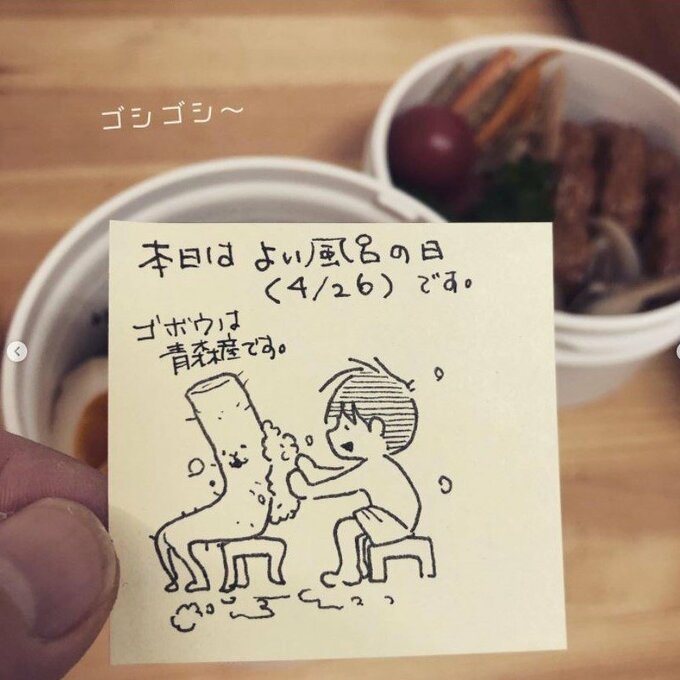 ゴシゴシ〜
本日は よい風呂の日
(4/26)です。
ゴボウは
青森産です。